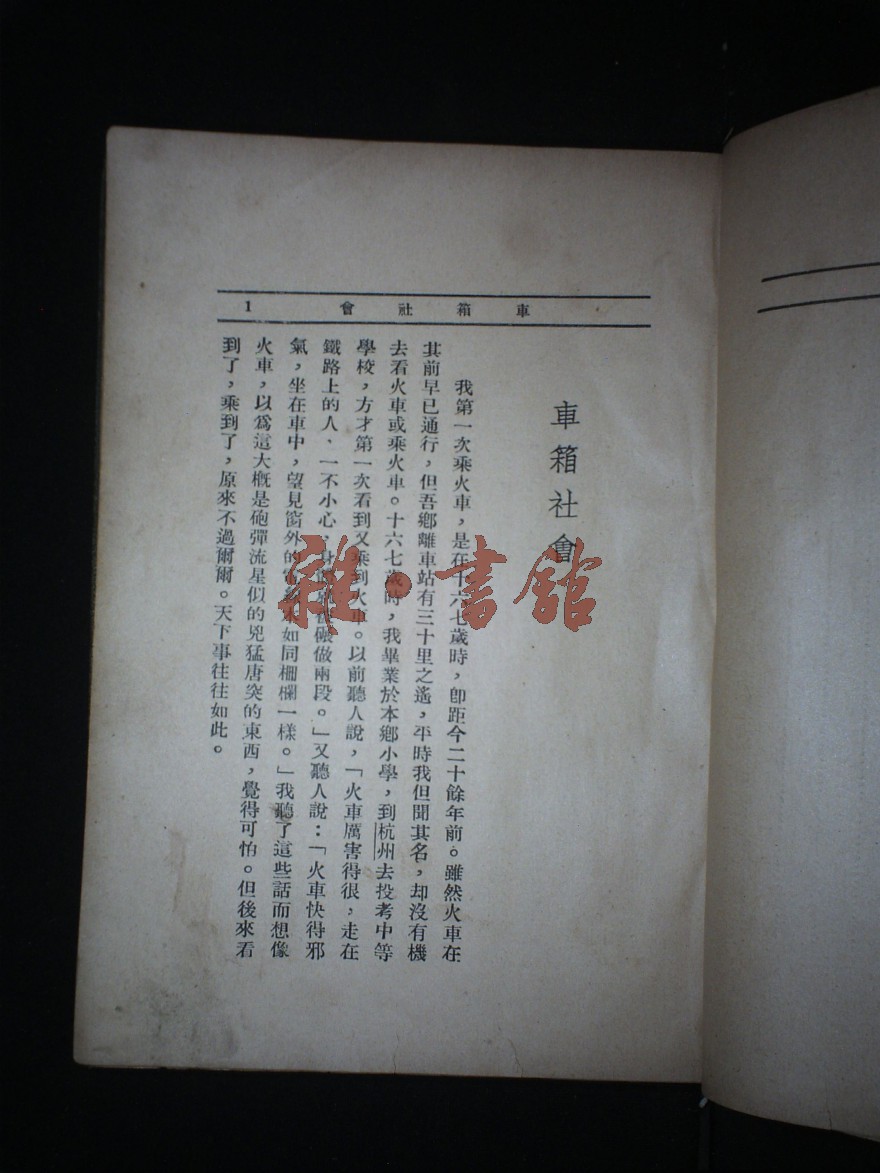 車箱社會 1
車箱社會
我第一次乘火車，是在十六七歲時，卽距今二十餘年前。雖然火車在
其前早已通行，但吾鄉離車站有三十里之遙，平時我但聞其名，却沒有機
去看火車或乘火車。十六七歲時，我畢業於本鄉小學，到杭州去投考中等
學校，方才第一次看到又乘到火車。以前聽人說，「火車厲害得很，走在
鐵路上的人，一不小心，身碾做兩段。」又聽人說：「火車快得邪
氣，坐在車中，望見窗外的木如同柵欄一樣。」我聽了這些話而想像
火車，以爲這大槪是砲彈流星似的兇猛唐突的東西，覺得可怕。但後來看
到了，乘到了，原來不過爾爾。天下事往往如此。
雜·書館